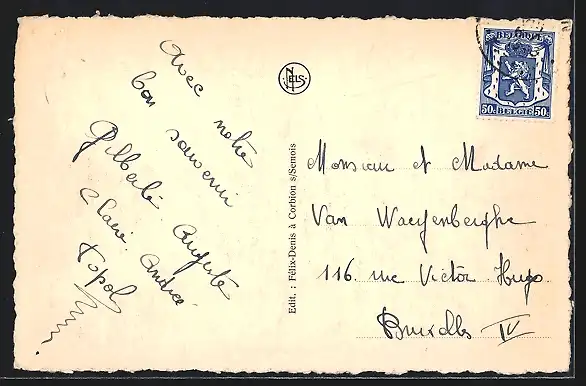 Avec notre
bon souvenir
Gilberte Auguste
Claire Andrée
Topol
NELS
Edit. : Félix-Denis à Corbion s/Semois
BELGIQUE
50c BELGIË 50c
Monsieur et Madame
Van Waeyenberghe
116 rue Victor Hugo
Bruxelles IV